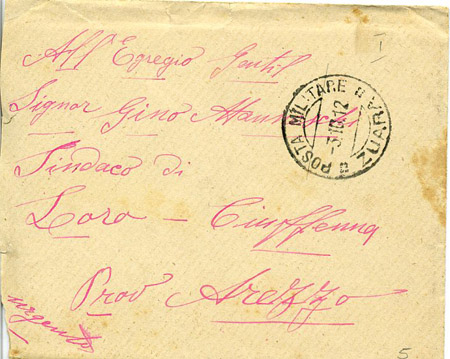 All'Egregio Gentil
Signor Gino
Sindaco di
Loro - Ciuffenna
Prov Arezzo
urgente
POSTA MILITARE
ZUARA
5